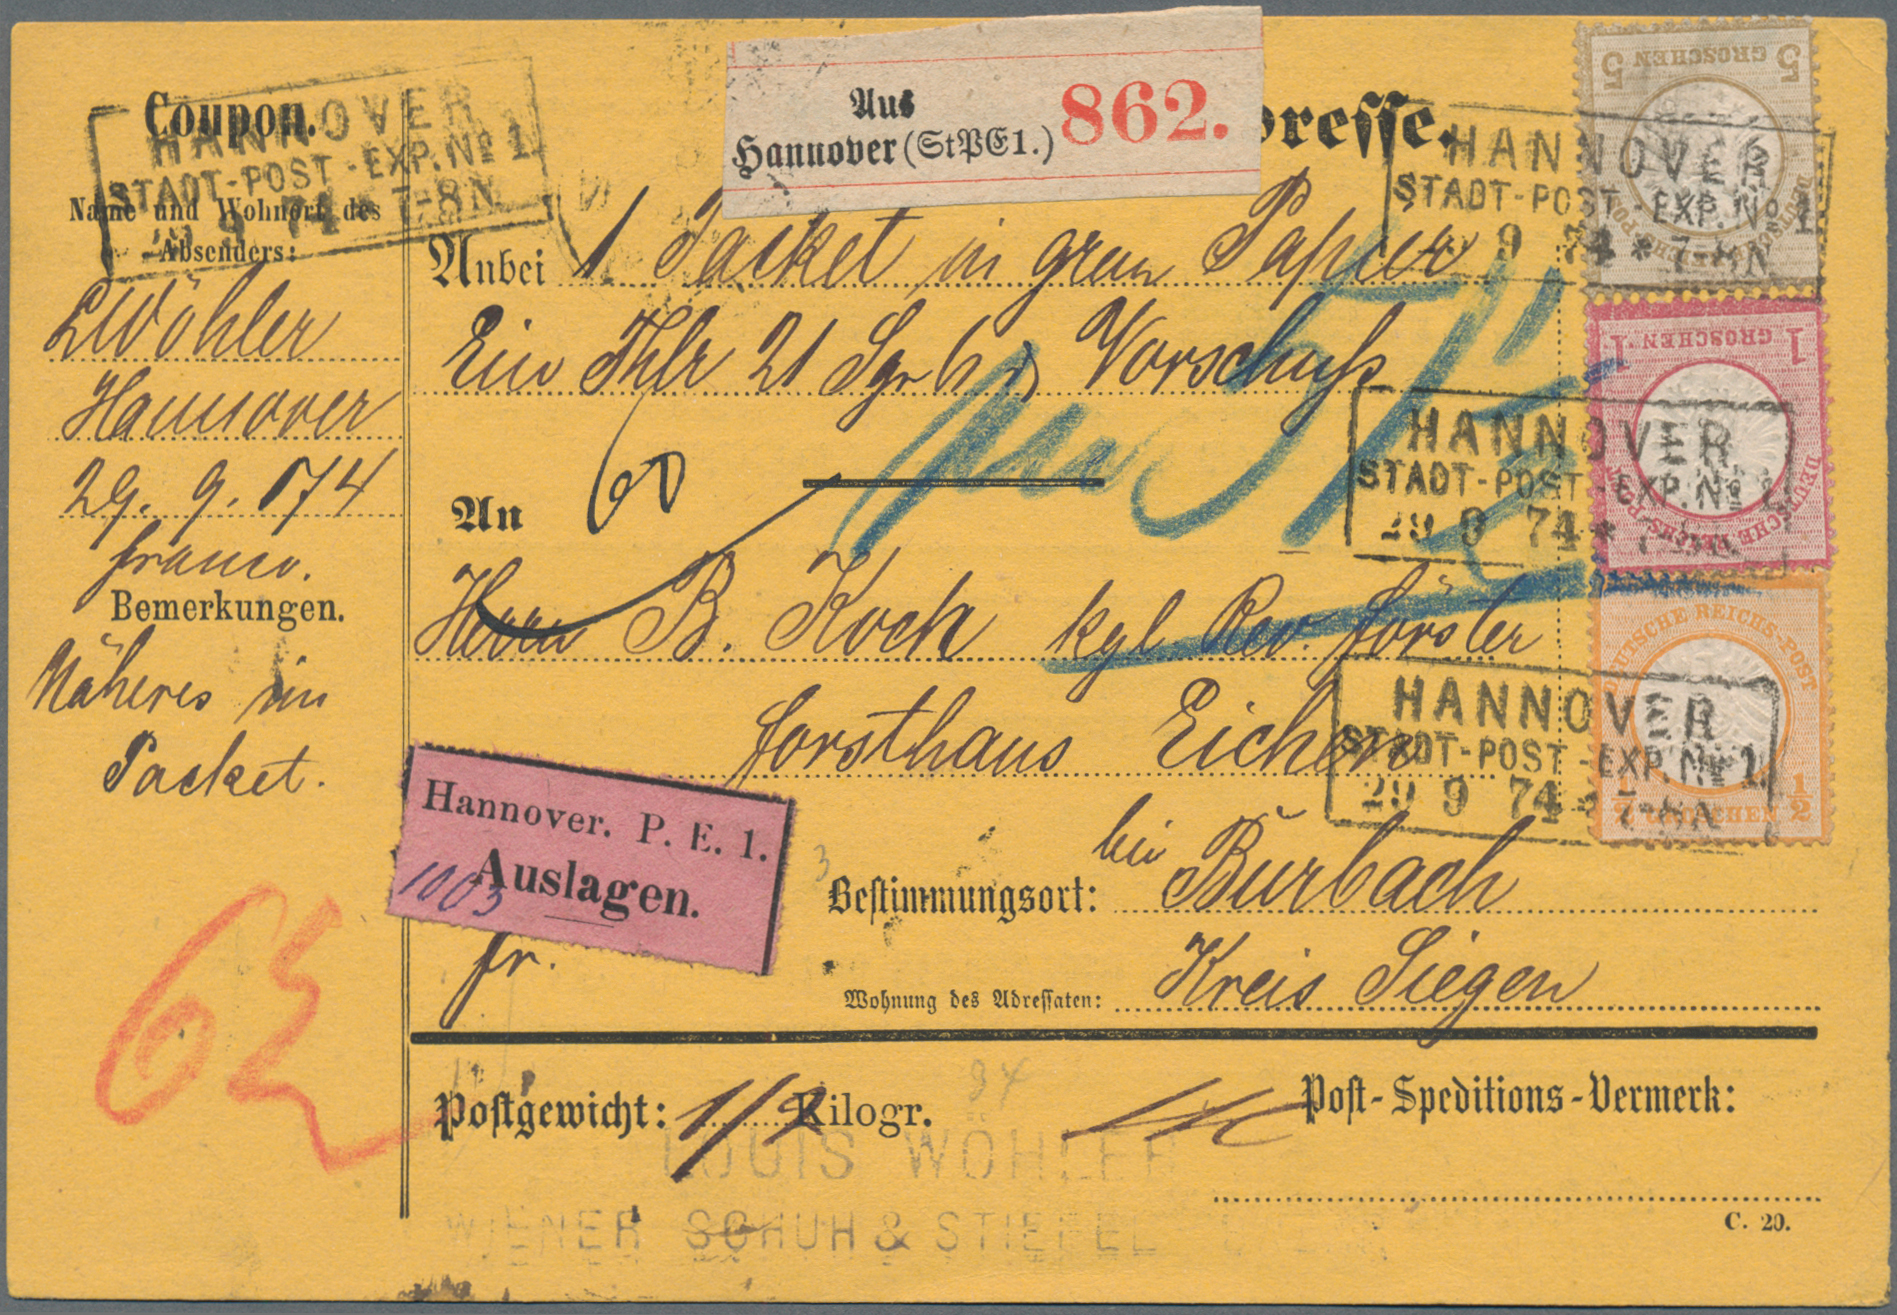 Coupon.
HANNOVER
STADT-POST-EXP. No 1.
29 9 74 * 7-8N
Name und Wohnort des
Absenders:
LWöhler
Hannover
29. 9. 174
franco.
Bemerkungen.
Näheres im
Packet.
62
Aus
Hannover (StPE1.)
862.
resse.
Anbei 1 Packet in grau Papier
Ein Thlr 21 Sgr 6 d Vorschuß
An
Herrn B. Koch kgl Rev. förster
forsthaus Eichen
Hannover. P. E. 1.
Auslagen.
1003
fr.
Bestimmungsort: bei Burbach
Wohnung des Adressaten: Kreis Siegen
Postgewicht: 1/2 Kilogr.
Post-Speditions-Vermerk:
LOUIS WÖHLER
WIENER SCHUH & STIEFEL
C. 20.
5 GROSCHEN 5
DEUTSCHE REICHS-POST
HANNOVER
STADT-POST-EXP. No 1
9 74 * 7-8N
1 GROSCHEN. 1.
DEUTSCHE REICHS-POST
HANNOVER
STADT-POST-EXP. No
29 9 74 *
DEUTSCHE REICHS-POST
1/2 GROSCHEN 1/2
HANNOVER
STADT-POST-EXP. No 1.
29 9 74 * 7-8N